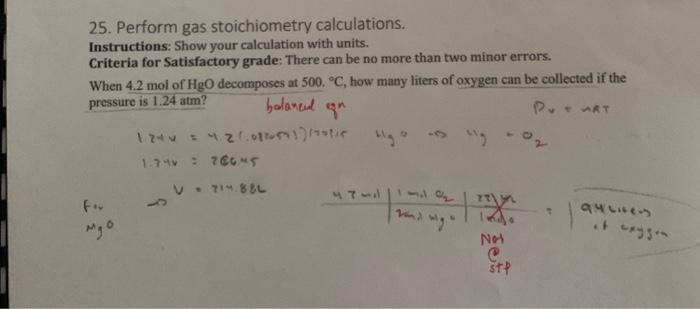 25. Perform gas stoichiometry calculations.
Instructions: Show your calculation with units.
Criteria for Satisfactory grade: There can be no more than two minor errors.
When 4.2 mol of HgO decomposes at 500. °C, how many liters of oxygen can be collected if the
pressure is 1.24 atm?
balanced eqn
PV = nRT
1.24V = 4.2(
HgO → Hg + O2
1.24V =
V = 214.88L
4.2 mol | 1 mol O2
2 mol HgO
=
94 Liters
of oxygen
For
Not
@
STP